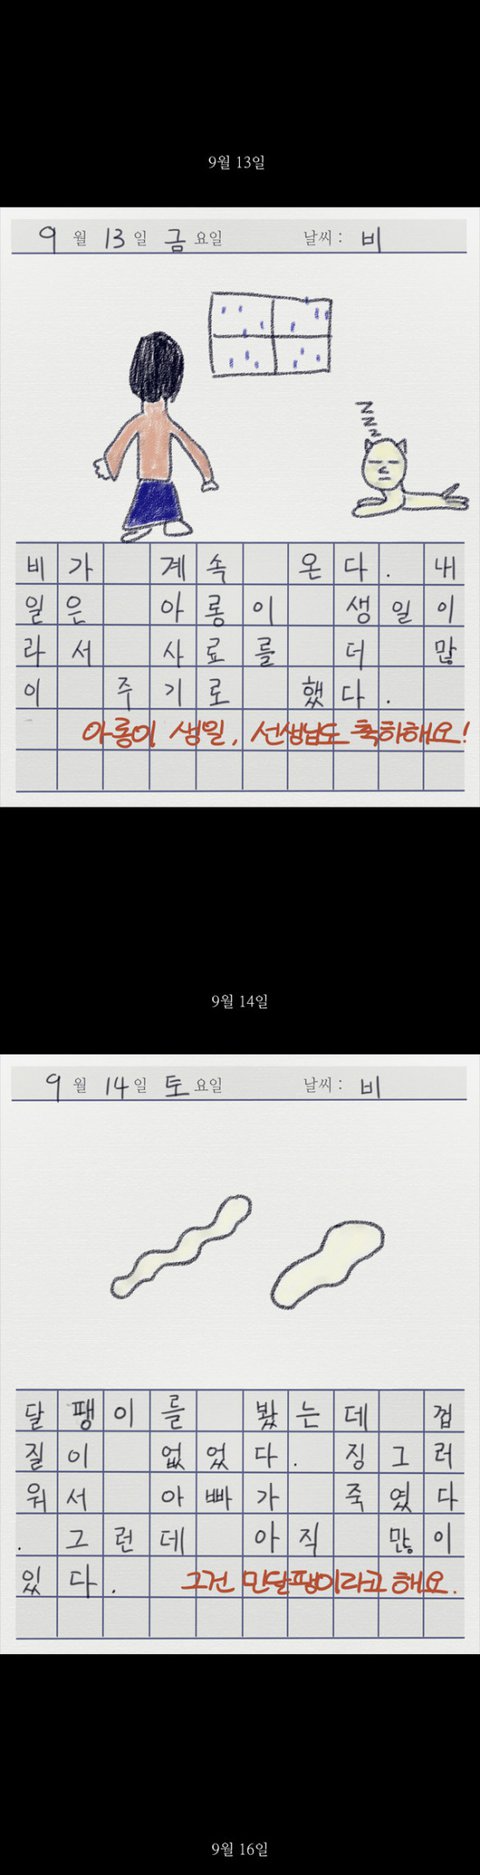 9월 13일
9 월 13 일 금 요일 날씨 : 비
비가 계속 온다. 내
일은 아롱이 생일이
라서 사료를 더 많
이 주기로 했다.
아롱이 생일, 선생님도 축하해요!
9월 14일
9 월 14 일 토 요일 날씨 : 비
달팽이를 봤는데 껍
질이 없었다. 징그러
워서 아빠가 죽였다
. 그런데 아직 많이
있다. 그건 민달팽이라고 해요.
9월 16일